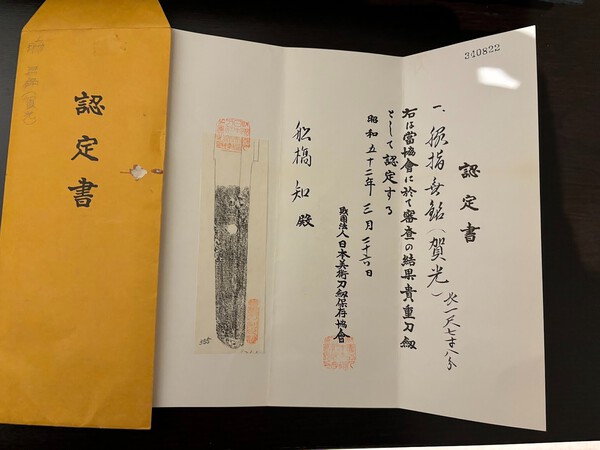 認定書
340822
認定書
一、脇指無銘(賀光)長一尺七寸八分
右は當協會に於て審査の結果貴重刀劔
として認定する
昭和五十二年三月二十六日
財團法人日本美術刀劔保存協會
船橋知殿